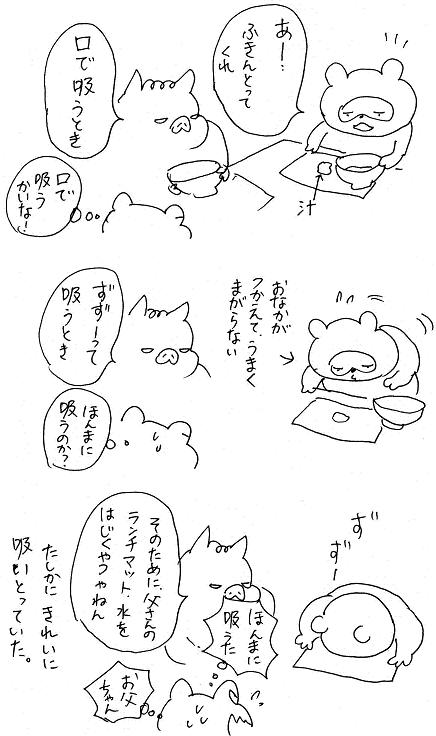 あー…
ふきんとって
くれ
汁
口で吸うとき
口で
吸う
かいな！
おなかが
つかえて、うまく
まがらない
ずずーって
吸うとき
ほんまに
吸うのか？
ず
ずー
そのために、父さんの
ランチマット、水を
はじくやつやねん
ほんまに
吸うた
お父
ちゃん
たしかに きれいに
吸いとっていた。